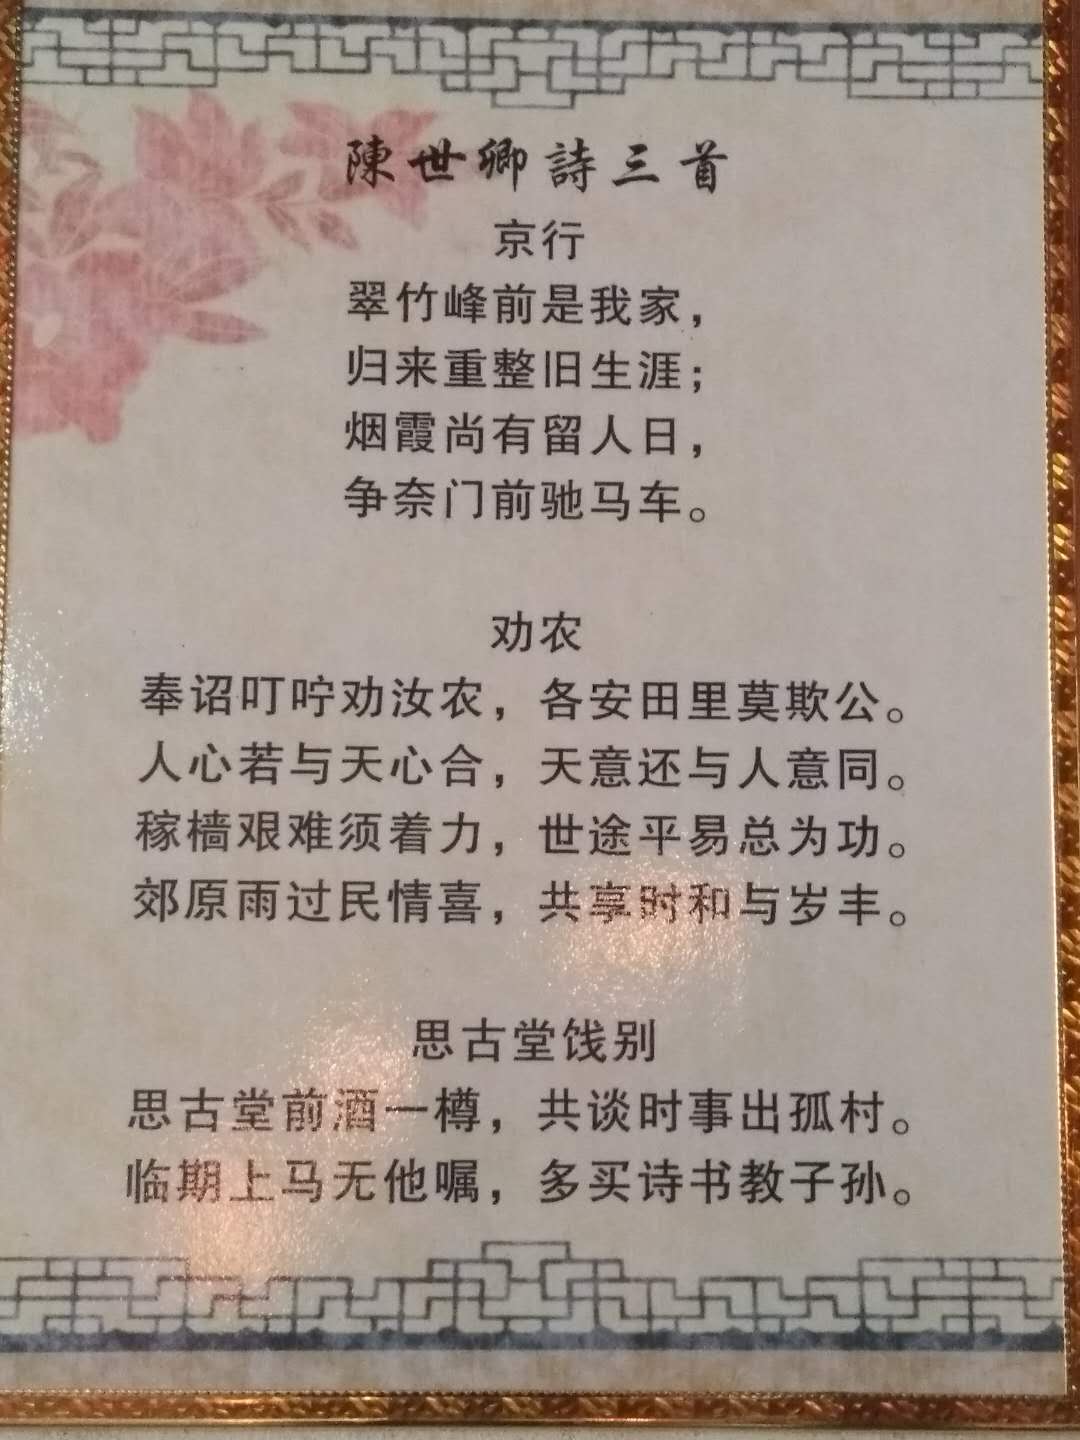 陳世卿詩三首
京行
翠竹峰前是我家，
归来重整旧生涯；
烟霞尚有留人日，
争奈门前驰马车。
劝农
奉诏叮咛劝汝农，各安田里莫欺公。
人心若与天心合，天意还与人意同。
稼樯艰难须着力，世途平易总为功。
郊原雨过民情喜，共享时和与岁丰。
思古堂饯别
思古堂前酒一樽，共谈时事出孤村。
临期上马无他嘱，多买诗书教子孙。